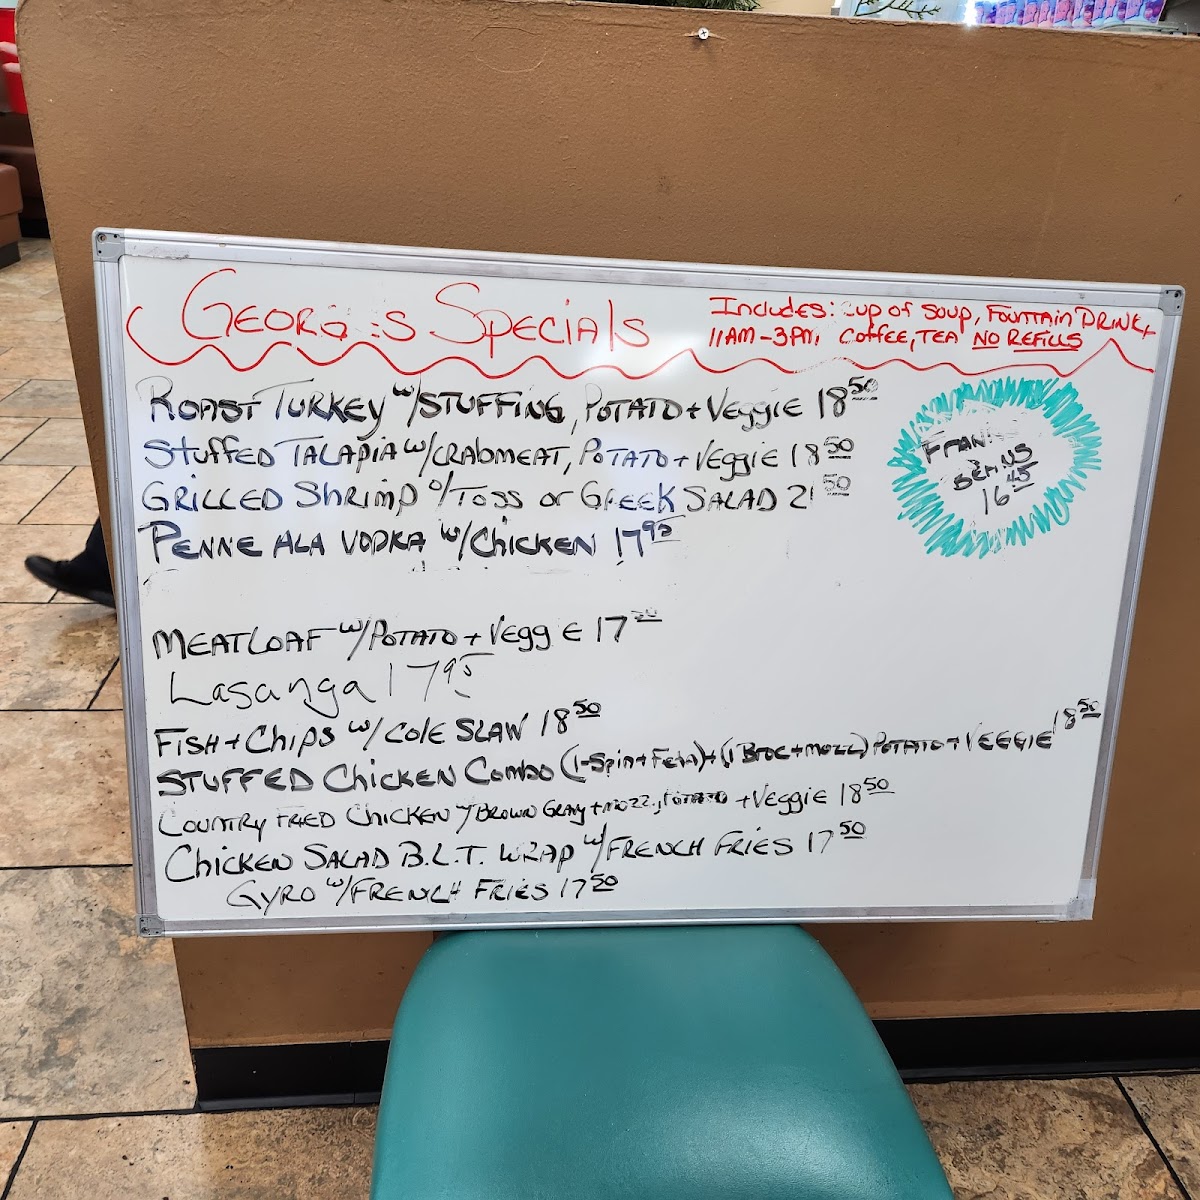 GEORGES SPECIALS
Includes: cup of soup, FOUNTAIN DRINK,
11AM-3PM, COFFEE, TEA NO REFILLS
ROAST TURKEY w/STUFFING, POTATO + Veggie 18 50
STUFFED TALAPIA w/CRABMEAT, POTATO + Veggie 18 50
GRILLED SHRIMP o/TOSS or GREEK SALAD 21 50
PENNE ALA VODKA w/CHICKEN 17 95
FRANKS
BEANS
16 45
MEATLOAF w/POTATO + Veggie 17
Lasanga 17 95
FISH + CHIPS w/COLE SLAW 18 50
STUFFED CHICKEN COMBO (1-Spin+Feta)+(1 BROC+MOZZ) POTATO + VEGGIE 18 50
COUNTRY FRIED CHICKEN w/BROWN GRAVY + MOZZ, POTATO + Veggie 18 50
CHICKEN SALAD B.L.T. WRAP w/FRENCH FRIES 17 50
GYRO w/FRENCH FRIES 17 50